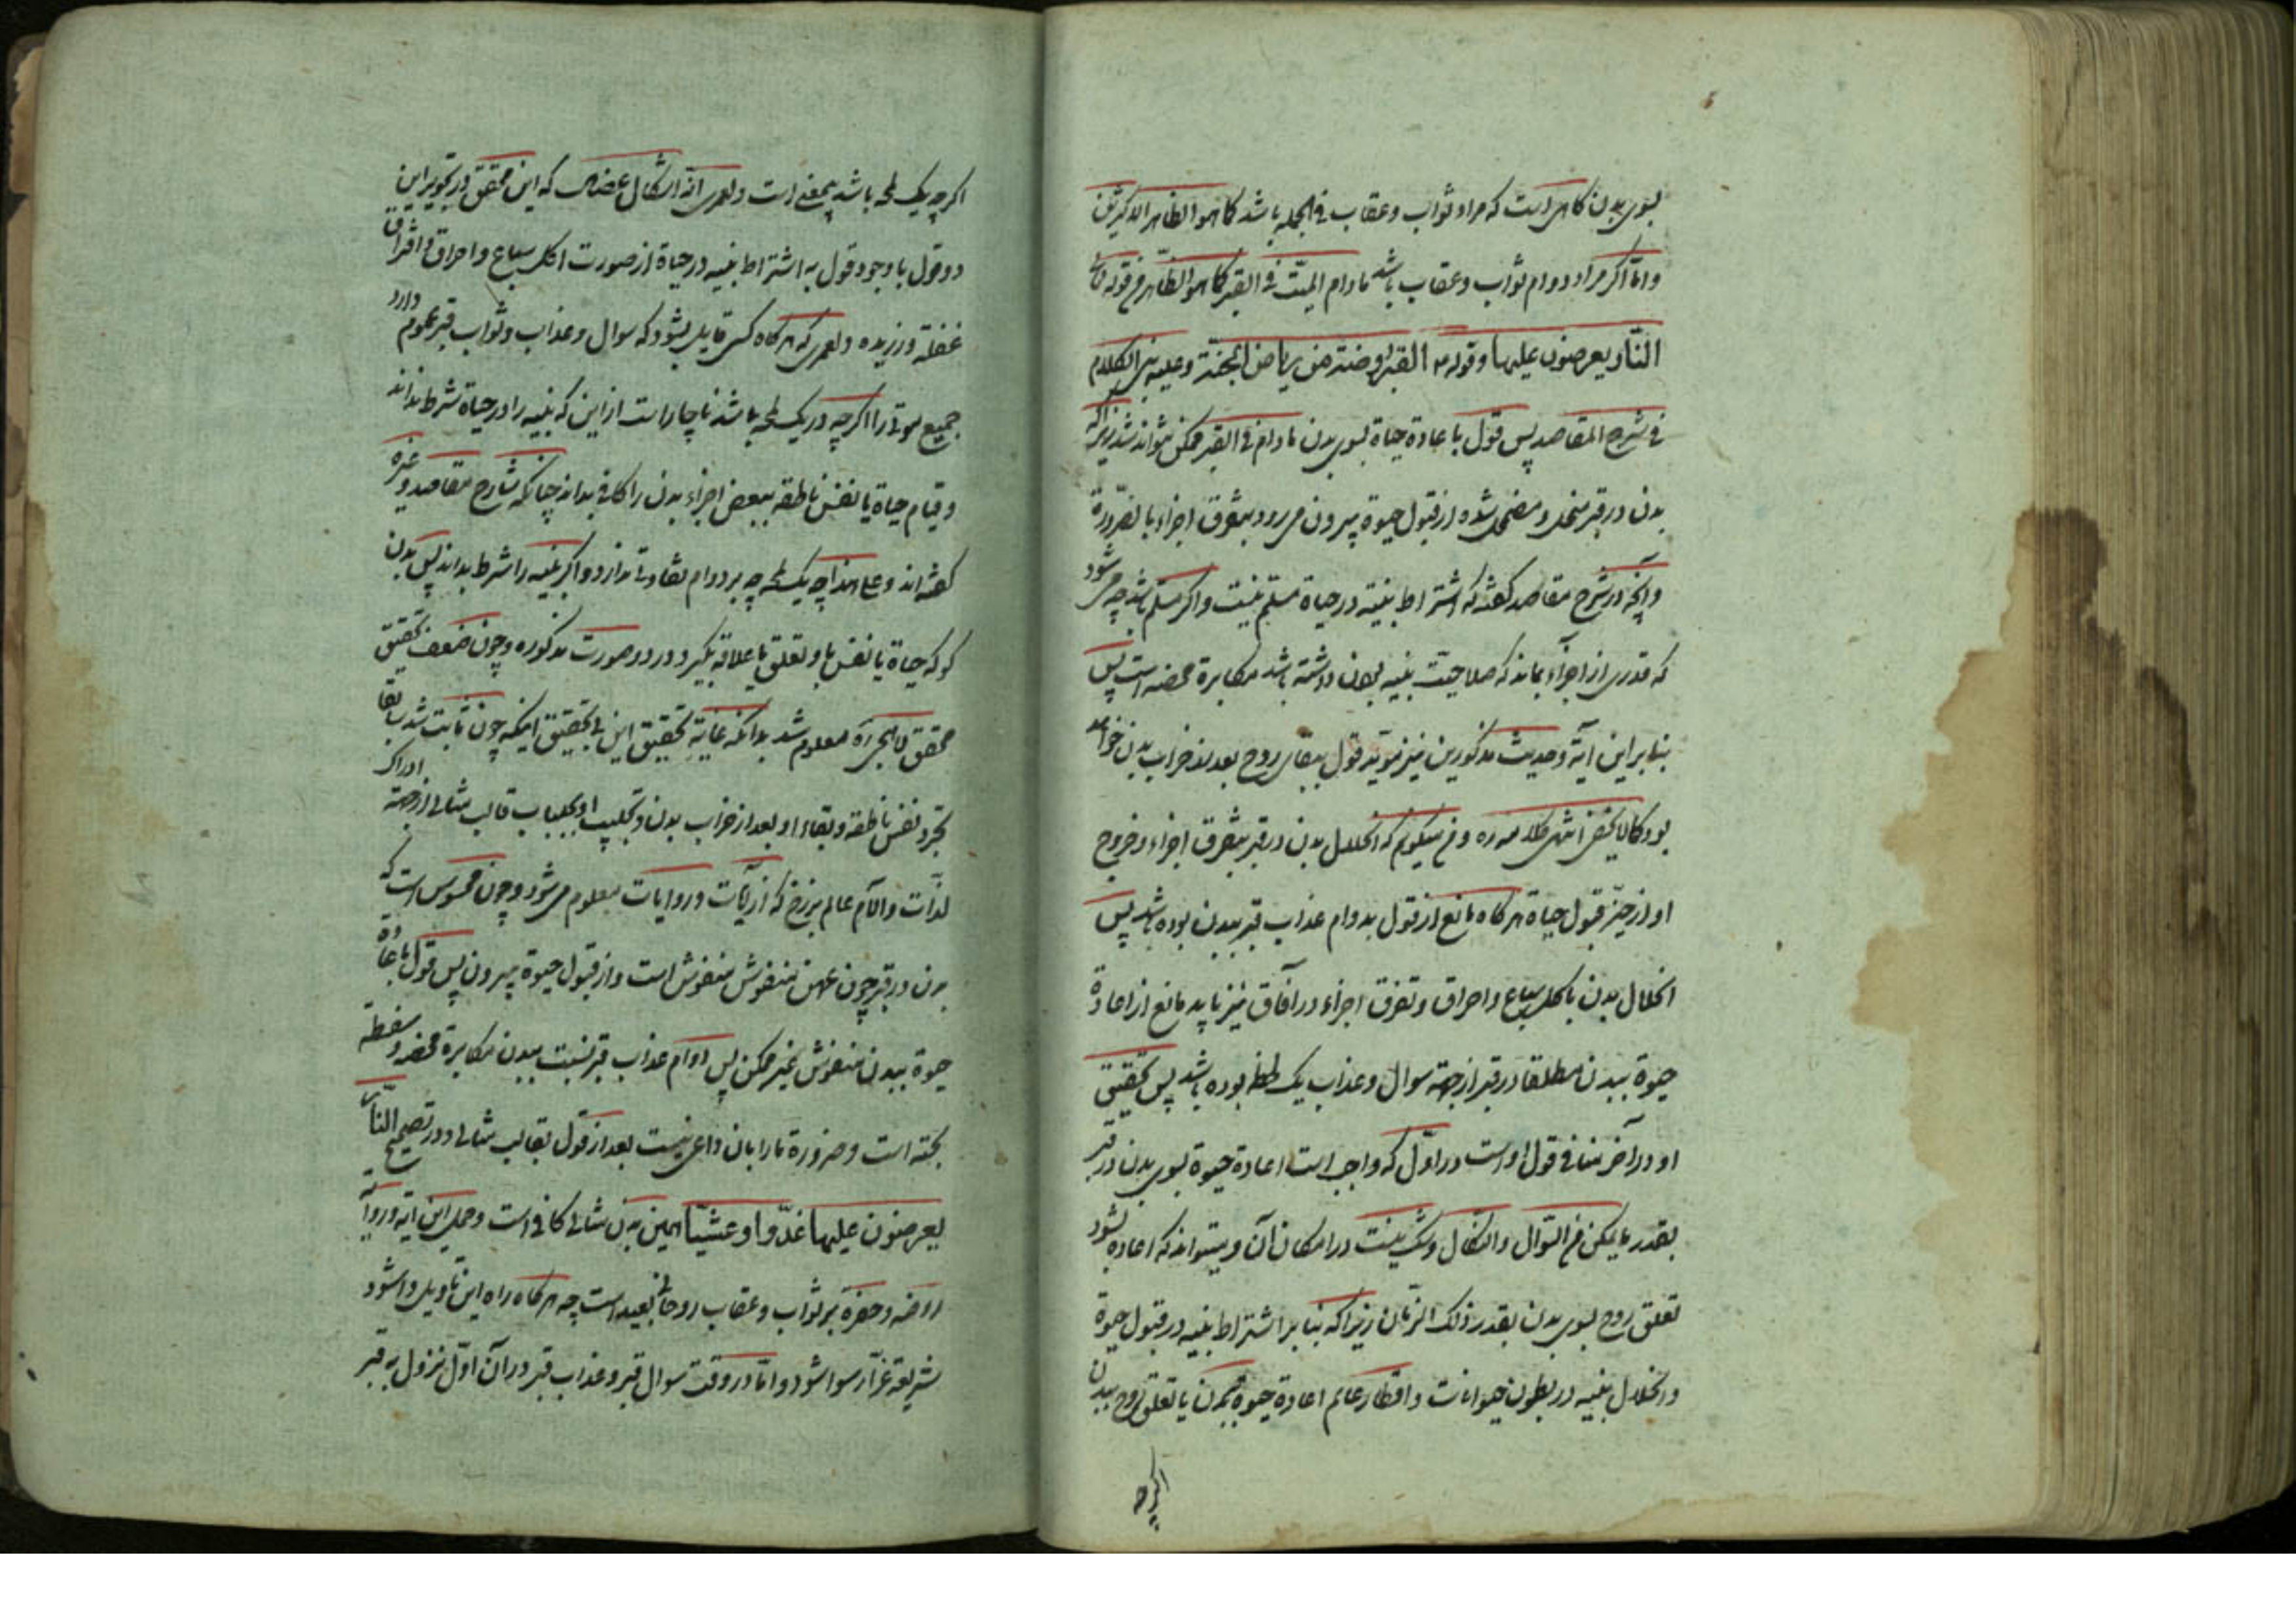 بسوی بدن کاهی است که مراد ثواب و عقاب فی الجمله باشد کما هو الظاهر الاکثرین
و امّا اکر مراد دوام ثواب و عقاب باشد مادام المیّت فی القبر کما هو الظاهر من قوله تعالی
النار یعرضون علیها و قوله القبر روضة من ریاض الجنّة و علیه بنی الکلام
فی شرح المقاصد پس قول باعادة حیاة بسوی بدن مادام فی القبر ممکن نتواند شد زیراکه
بدن در قبر منحل و مضمحل شده از قبول حیوة بیرون می رود بتفرق اجزاء بالضرورة
و آنچه در شرح مقاصد کفته که اشتراط بنیه در حیاة مسلّم نیست و اکر مسلم باشد چه می شود
که قدری از اجزاء بماند که صلاحیّت بنیه بودن داشته باشد مکابرة محضه است پس
بنابر این آیة و حدیث مذکورین نیز مؤید قول ببقای روح بعد از خراب بدن خواهد
بود کما لا یخفی انتهی کلامه ره و من میکویم که انحلال بدن در قبر بتفرق اجزاء و خروج
او از حیّز قبول حیاة هرکاه مانع از قول بدوام عذاب قبر ببدن بوده باشد پس
انحلال بدن باکل سباع و احراق و تفرق اجزاء در آفاق نیز باید مانع از اعادة
حیوة ببدن مطلقا در قبر از جهة سوال و عذاب یک لحظه بوده باشد پس تحقیق
او در آخر منافی قول اوست در اوّل که واجب است اعادة حیوة بسوی بدن در قبر
بقدر ما یمکن من السّوال و النکال و شک نیست در امکان آن و میتواند که اعاده نشود
تعلق روح بسوی بدن بقدر ذلک الزّمان زیراکه بنابر اشتراط بنیه در قبول حیوة
و انحلال بنیه در بطون حیوانات و اقطار عالم اعادة حیوة ببدن یا تعلق روح ببدن
اکرچه
اکرچه یک لمحه باشد بیمعنی است و لعمری انّه اشکال عضال که این محقق در تجویز این
دو قول با وجود قول به اشتراط بنیه در حیاة از صورت اکل سباع و احراق و افتراق
غفلة ورزیده و لعمری که هرکاه کسی قایل بشود که سوال و عذاب و ثواب قبر عموم دارد
جمیع موتی را اکرچه در یک لمحه باشد ناچار است از این که بنیه را در حیاة شرط نداند
و قیام حیاة یا نفس ناطقه ببعض اجزاء بدن را کافی بداند چنانکه شارح مقاصد و غیره
کفته اند و علی هذا چه یک لمحه چه بر دوام تفاوتی ندارد و اکر بنیه را شرط بداند پس بدن
کو که حیاة یا نفس باو تعلق یا علاقه بکیرد در دو صورت مذکوره و چون ضعف تحقیق
محقق لاهیجی ره معلوم شد بدانکه غایة تحقیق این بی تحقیق اینکه چون ثابت شد بقا
تجرد نفس ناطقه و بقاء او بعد از خراب بدن و تجلبب او بجلباب قالب مثالی از جهة ادراک
لذّات و الآم عالم برزخ که از آیات و روایات معلوم می شود و چون محسوس است که
بدن در قبر چون عهن منفوش منفوش است و از قبول حیوة بیرون پس قول باعادة
حیوة ببدن منفوش غیر ممکن پس دوام عذاب قبر نسبت ببدن مکابرة محضه و سفسطه
بحته است و ضرورة ما را بان داعی نیست بعد از قول بقالب مثالی و در تصحیح النار
یعرضون علیها غدوا و عشیّا همین بدن مثالی کافی است و حمل این ایه و روایة
روضه و حفره بر ثواب و عقاب روحانی بعید است چه هرکاه راه این تاویل وا شود
شریعة غرّا رسوا شود و امّا در وقت سوال قبر و عذاب قبر در آن اوّل نزول به قبر